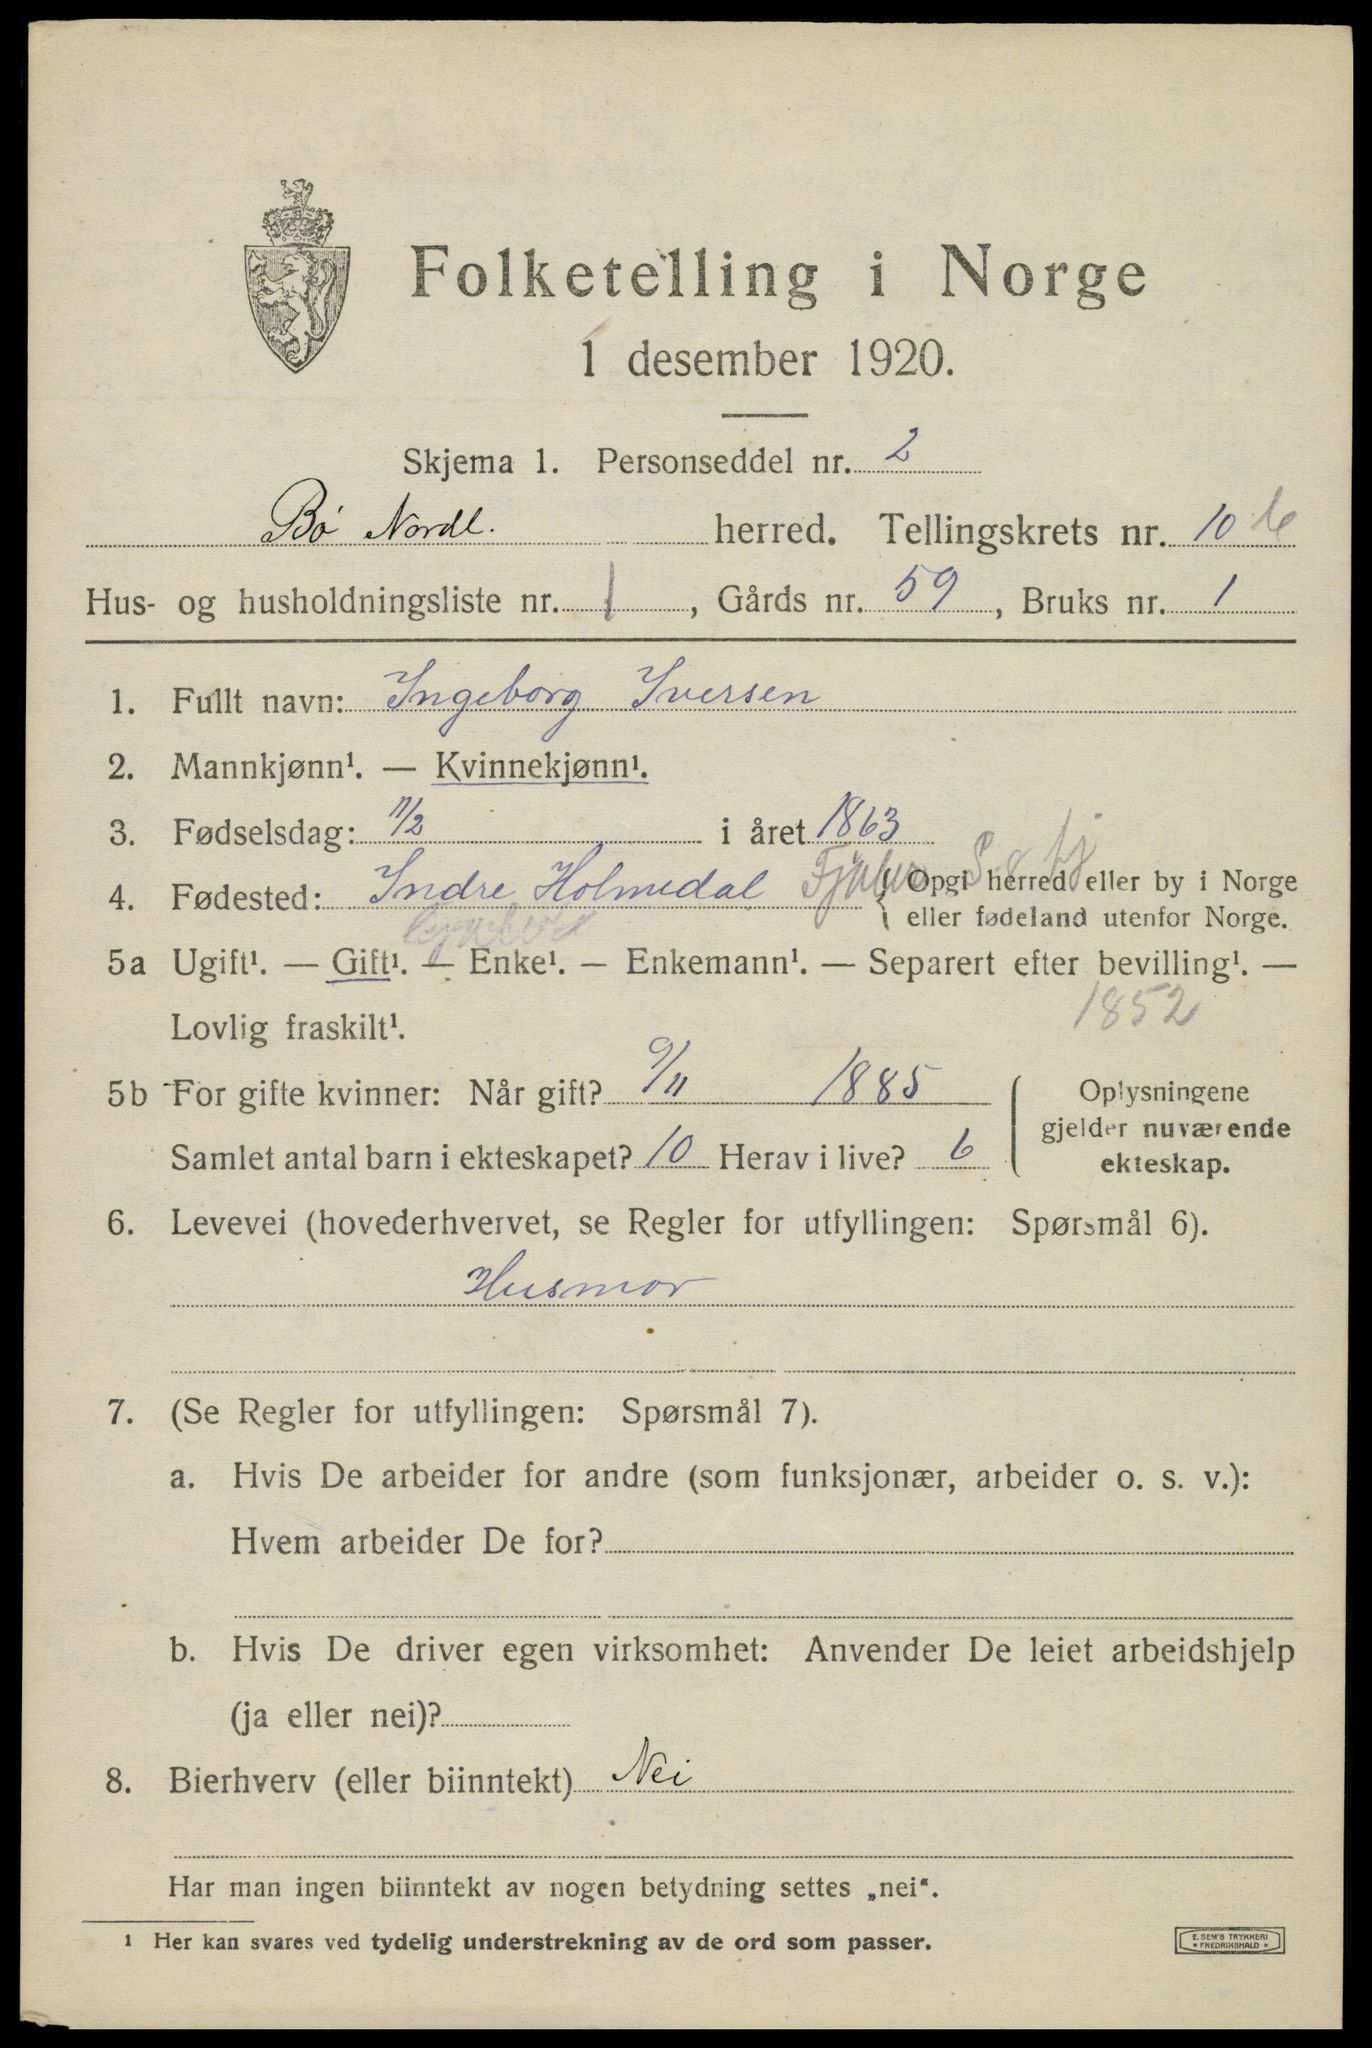 Folketelling i Norge
1 desember 1920.
Skjema 1. Personseddel nr. 2
Bø Nordl. herred. Tellingskrets nr. 10
Hus- og husholdningsliste nr. 1, Gårds nr. 59, Bruks nr. 1
1. Fullt navn: Ingeborg Iversen
2. Mannkjønn¹. — Kvinnekjønn¹.
3. Fødselsdag: 11/2 i året 1863
4. Fødested: Indre Holmedal Fjaler { Opgi herred eller by i Norge
eller fødeland utenfor Norge.
5a Ugift¹. — Gift¹. — Enke¹. — Enkemann¹. — Separert efter bevilling¹. —
Lovlig fraskilt¹. 1852
5b For gifte kvinner: Når gift? 9/11 1885
Samlet antal barn i ekteskapet? 10 Herav i live? 6
Oplysningene
gjelder nuværende
ekteskap.
6. Levevei (hovederhvervet, se Regler for utfyllingen: Spørsmål 6).
Husmor
7. (Se Regler for utfyllingen: Spørsmål 7).
a. Hvis De arbeider for andre (som funksjonær, arbeider o. s. v.):
Hvem arbeider De for?
b. Hvis De driver egen virksomhet: Anvender De leiet arbeidshjelp
(ja eller nei)?
8. Bierhverv (eller biinntekt) Nei
Har man ingen biinntekt av nogen betydning settes „nei“.
¹ Her kan svares ved tydelig understrekning av de ord som passer.
E. SEM'S TRYKKERI
* FREDRIKSHALD *